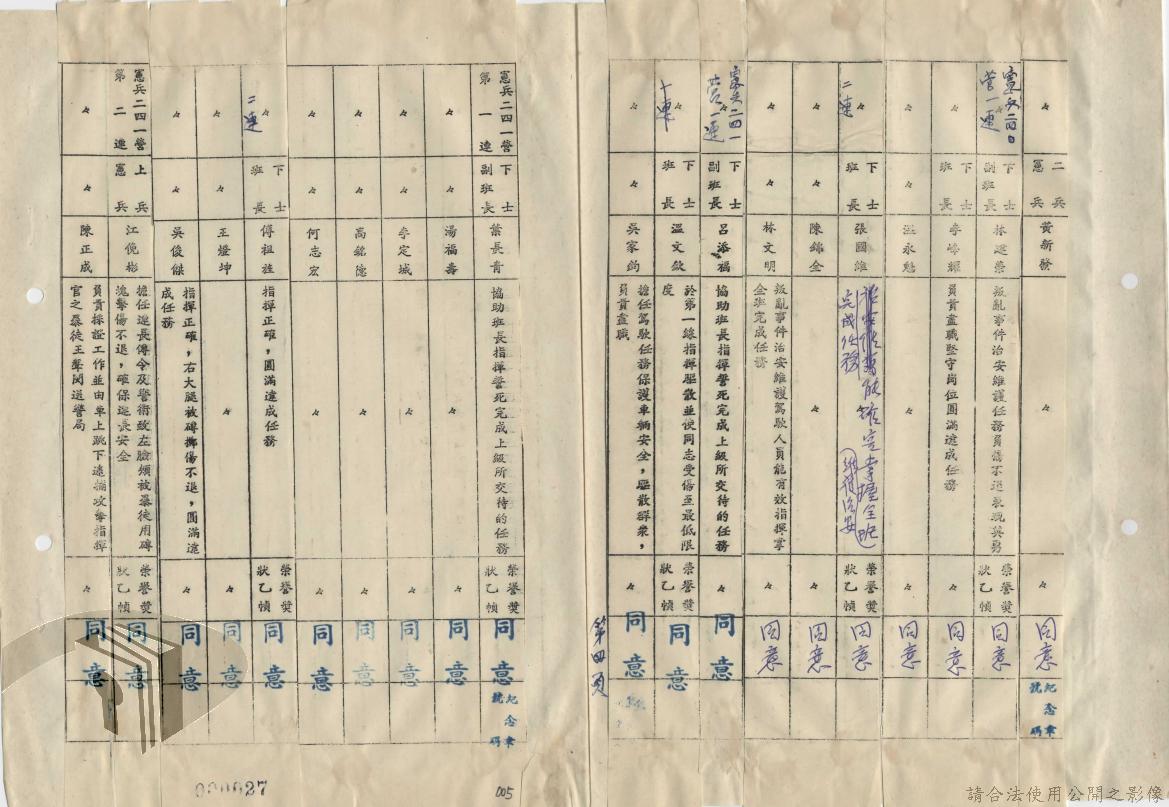 〃
二兵
憲兵
黃新發
〃
〃
同意
紀念章
號碼
憲兵二四〇
營一連
下士
副班長
林建榮
叛亂事件治安維護任務負傷不退表現英勇
榮譽獎
狀乙幀
同意
〃
〃
李峰耀
員責盡職堅守崗位圓滿達成任務
〃
同意
〃
〃
〃
〃
同意
二連
下士
班長
張國維
完成任務
榮譽獎
狀乙幀
同意
〃
〃
陳錦全
〃
〃
同意
〃
〃
林文明
叛亂事件治安維護駕駛人員能有效指揮掌
全班完成任務
〃
同意
憲兵二四一
營一連
下士
副班長
呂添福
協助班長指揮誓死完成上級所交待的任務
〃
同意
〃
下士
班長
溫文欽
於第一線指揮驅散並使同志受傷至最低限
度
榮譽獎
狀乙幀
同意
〃
〃
吳家鈞
擔任駕駛任務保護車輛安全，驅散群眾，
員責盡職
〃
同意
第四頁
憲兵二四一營
第一連
下士
副班長
葉長青
協助班長指揮誓死完成上級所交待的任務
榮譽獎
狀乙幀
同意
紀念章
號碼
〃
〃
湯福壽
〃
〃
同意
〃
〃
李定城
〃
同意
〃
〃
高銘德
〃
同意
〃
〃
何志宏
〃
〃
同意
二連
下士
班長
傅祖旌
指揮正確，圓滿達成任務
榮譽獎
狀乙幀
同意
〃
〃
王燈坤
〃
〃
同意
〃
〃
吳俊傑
指揮正確，右大腿被磚擲傷不退，圓滿達
成任務
〃
同意
憲兵二四一營
第二連
上兵
憲兵
江俛彬
擔任連長傳令及警衛致左臉頰被暴徒用磚
塊擊傷不退，確保連長安全
榮譽獎
狀乙幀
同意
〃
〃
陳正成
員責採證工作並由車上跳下逮捕攻擊指揮
官之暴徒王聲閔送警局
〃
同意
000027
005
請合法使用公開之影像